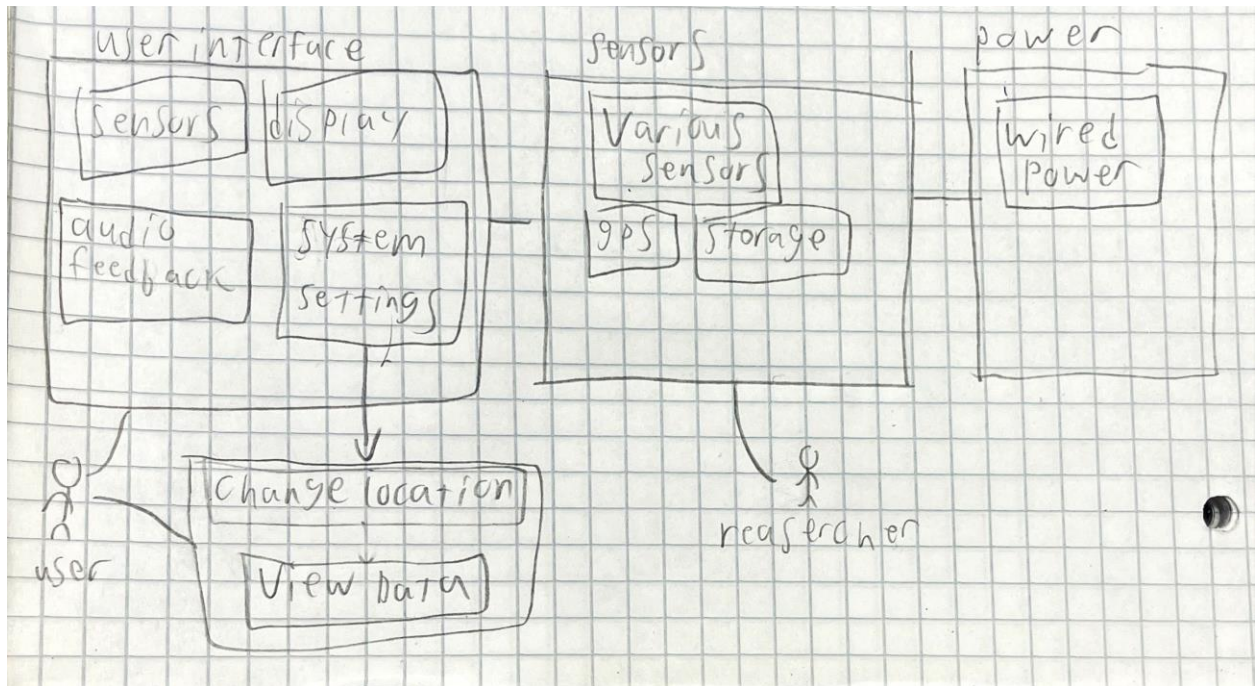 user interface
sensors
display
audio
feedback
system
settings
sensors
Various
sensors
gps
storage
power
wired
power
user
Change location
View Data
reasercher